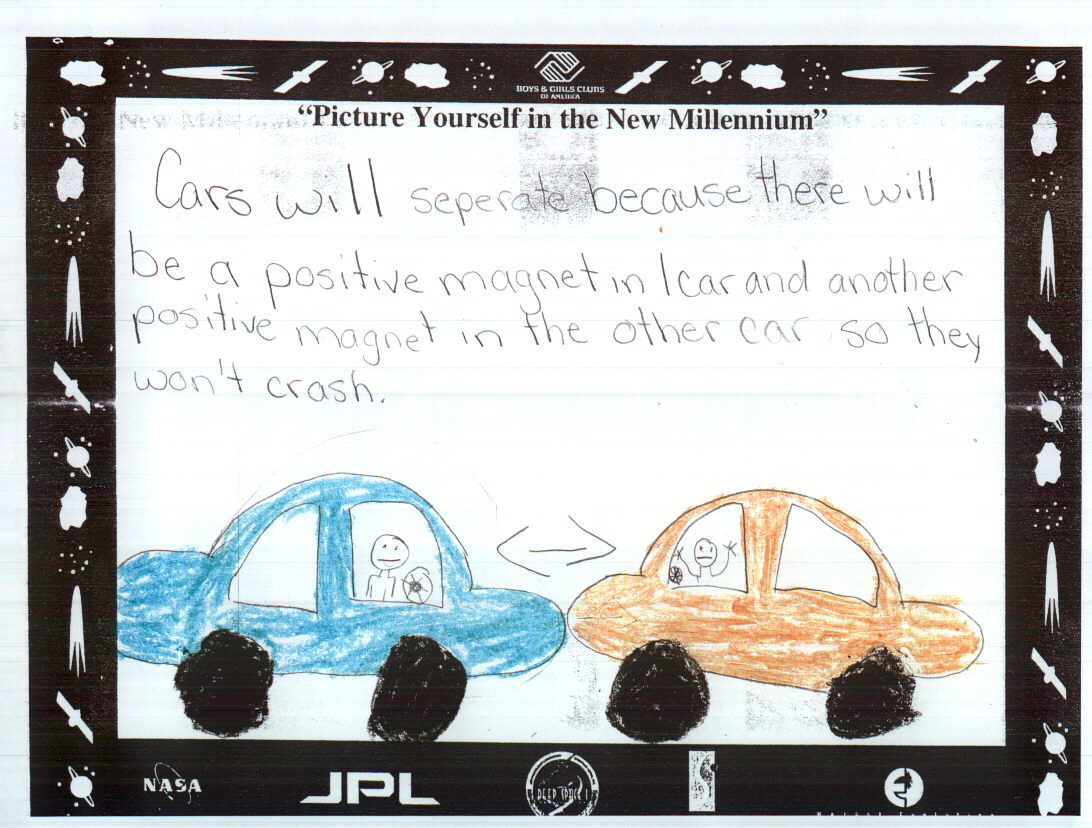 BOYS & GIRLS CLUBS
OF AMERICA
"Picture Yourself in the New Millennium"
Cars will seperate because there will
be a positive magnet in 1 car and another
positive magnet in the other car so they
won't crash.
NASA
JPL
DEEP SPACE 1